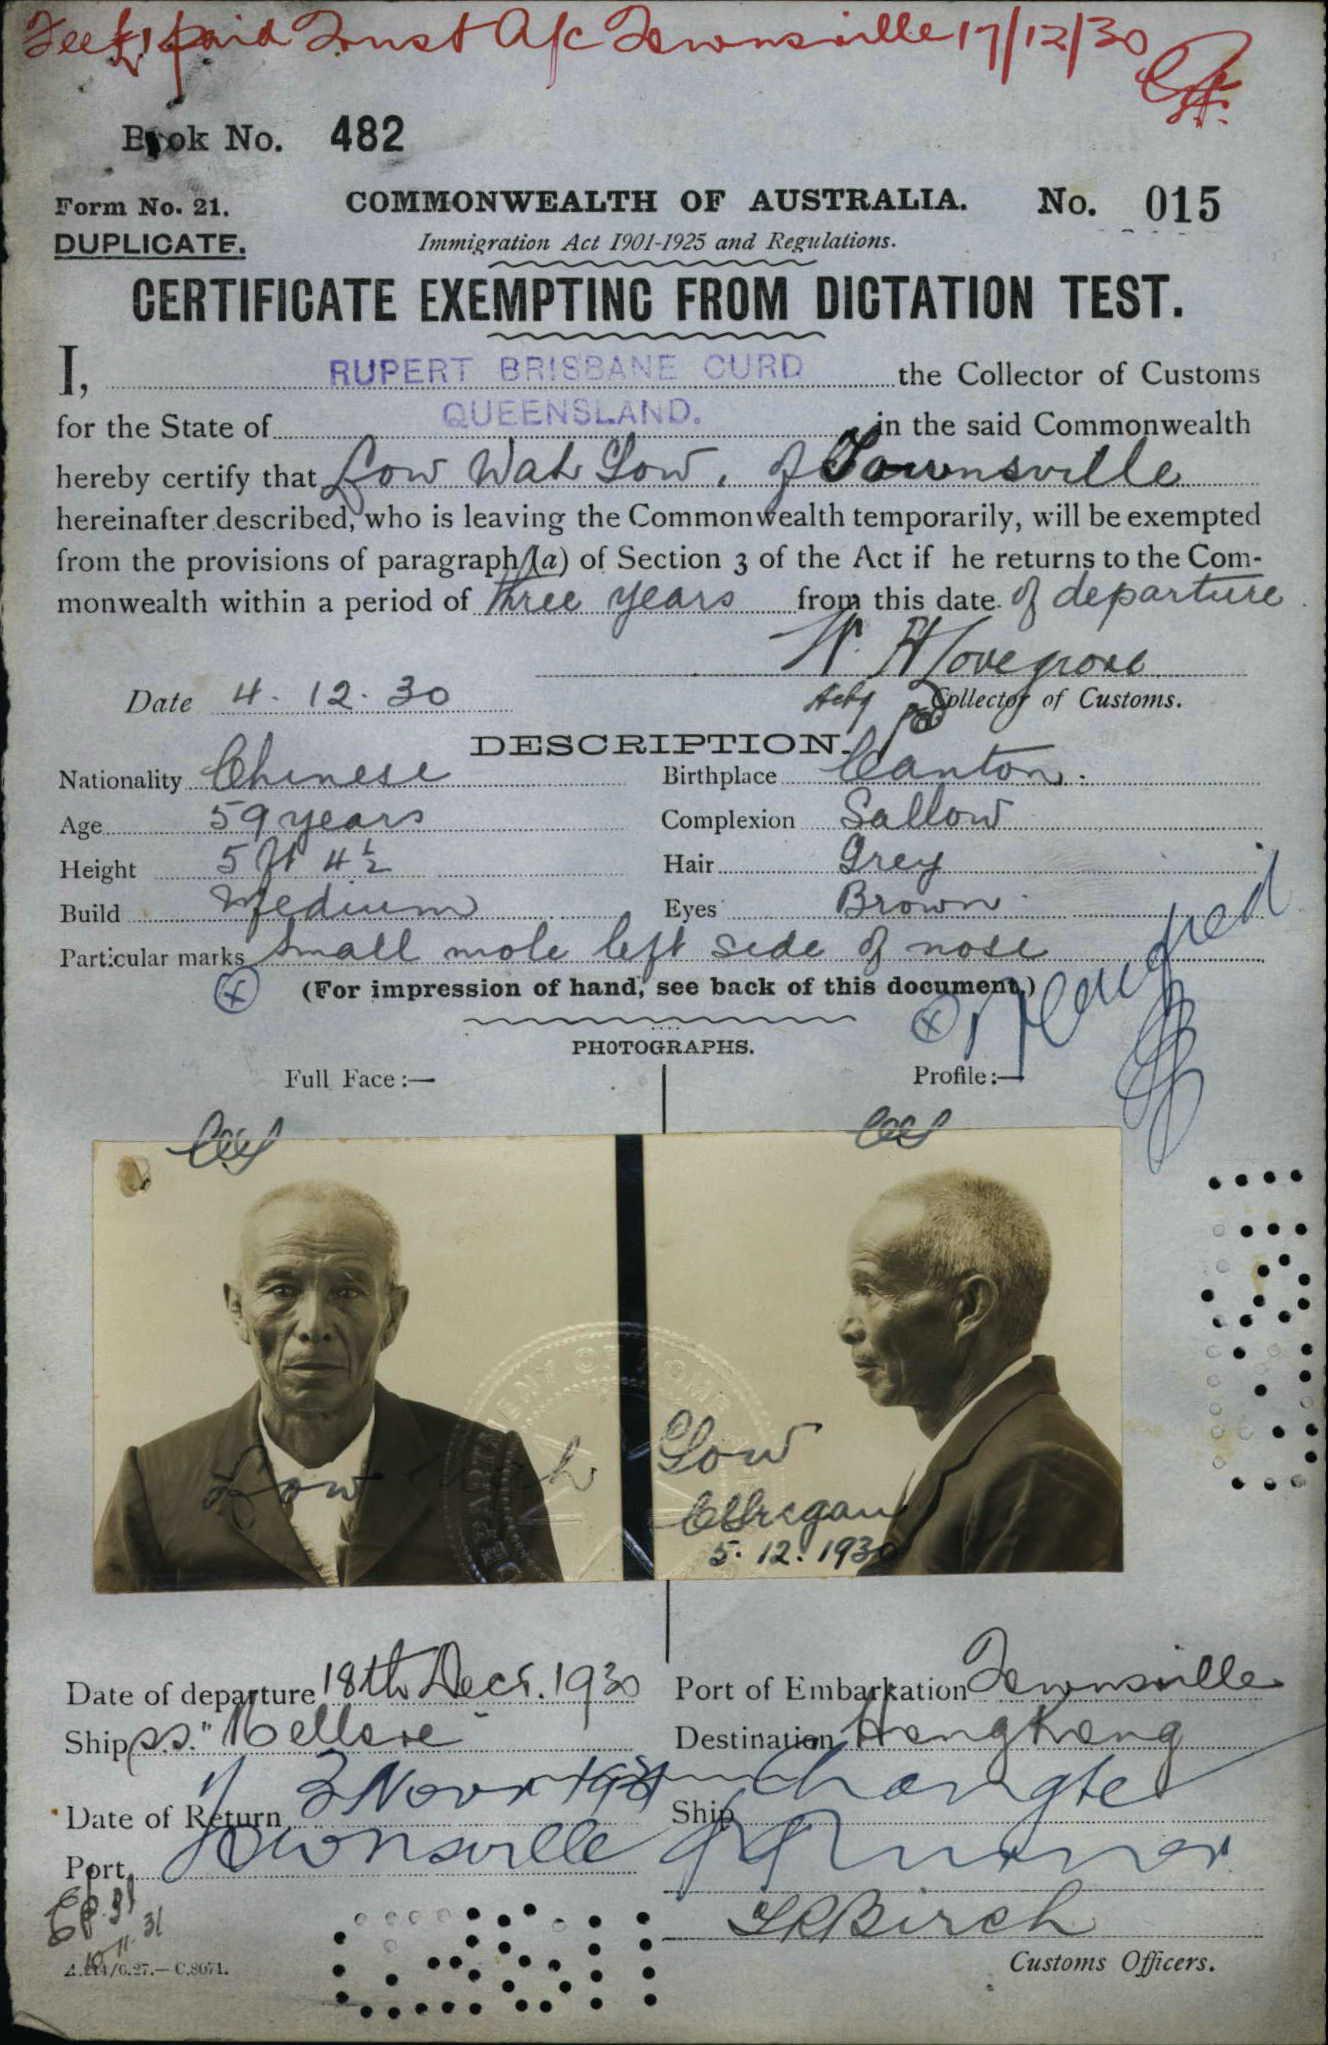 Fee £1 paid Trust A/c Townsville 17/12/30
Book No. 482
Form No. 21.
COMMONWEALTH OF AUSTRALIA.
No. 015
DUPLICATE.
Immigration Act 1901-1925 and Regulations.
CERTIFICATE EXEMPTING FROM DICTATION TEST.
I, RUPERT BRISBANE CURD the Collector of Customs
for the State of QUEENSLAND. in the said Commonwealth
hereby certify that Low Wah Gow, of Townsville
hereinafter described, who is leaving the Commonwealth temporarily, will be exempted
from the provisions of paragraph (a) of Section 3 of the Act if he returns to the Com-
monwealth within a period of three years from this date of departure
W. H. Lovegrove
Date 4. 12. 30
Actg Collector of Customs.
DESCRIPTION.
Nationality Chinese Birthplace Canton.
Age 59 years Complexion Sallow
Height 5 ft 4½ Hair Grey
Build Medium Eyes Brown
Particular marks Small mole left side of nose
(For impression of hand, see back of this document.)
PHOTOGRAPHS.
Full Face:— Profile:—
Low Wah Gow
5. 12. 1930
Date of departure 18th Decr. 1930 Port of Embarkation Townsville
Ship s.s. "Mellore" Destination Hong Kong
Date of Return 3 Novr 1931 Ship Changte
Port Townsville
Birch
10.11.31
Customs Officers.